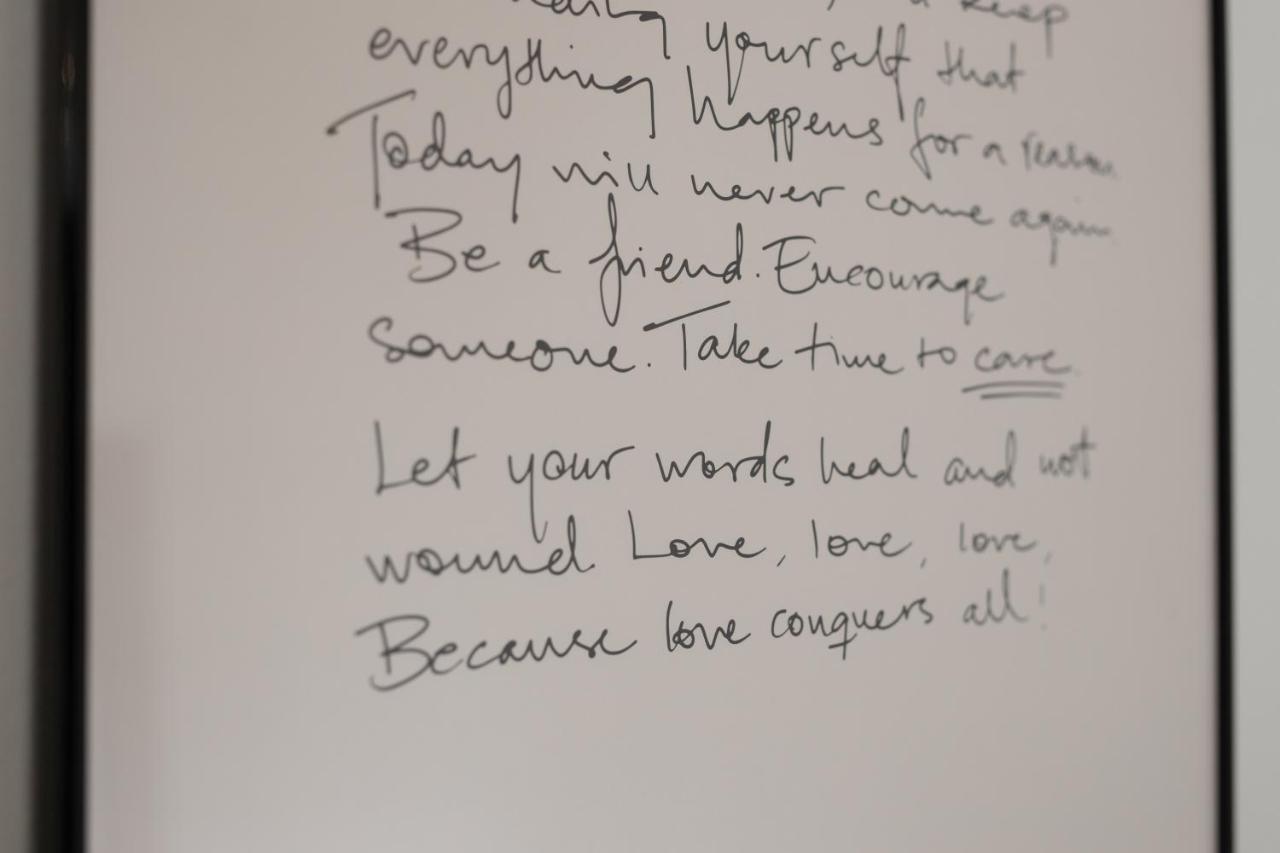 keep
yourself that
everything happens for a reason
Today will never come again
Be a friend. Encourage
Someone. Take time to care.
Let your words heal and not
wound. Love, love, love,
Because love conquers all!